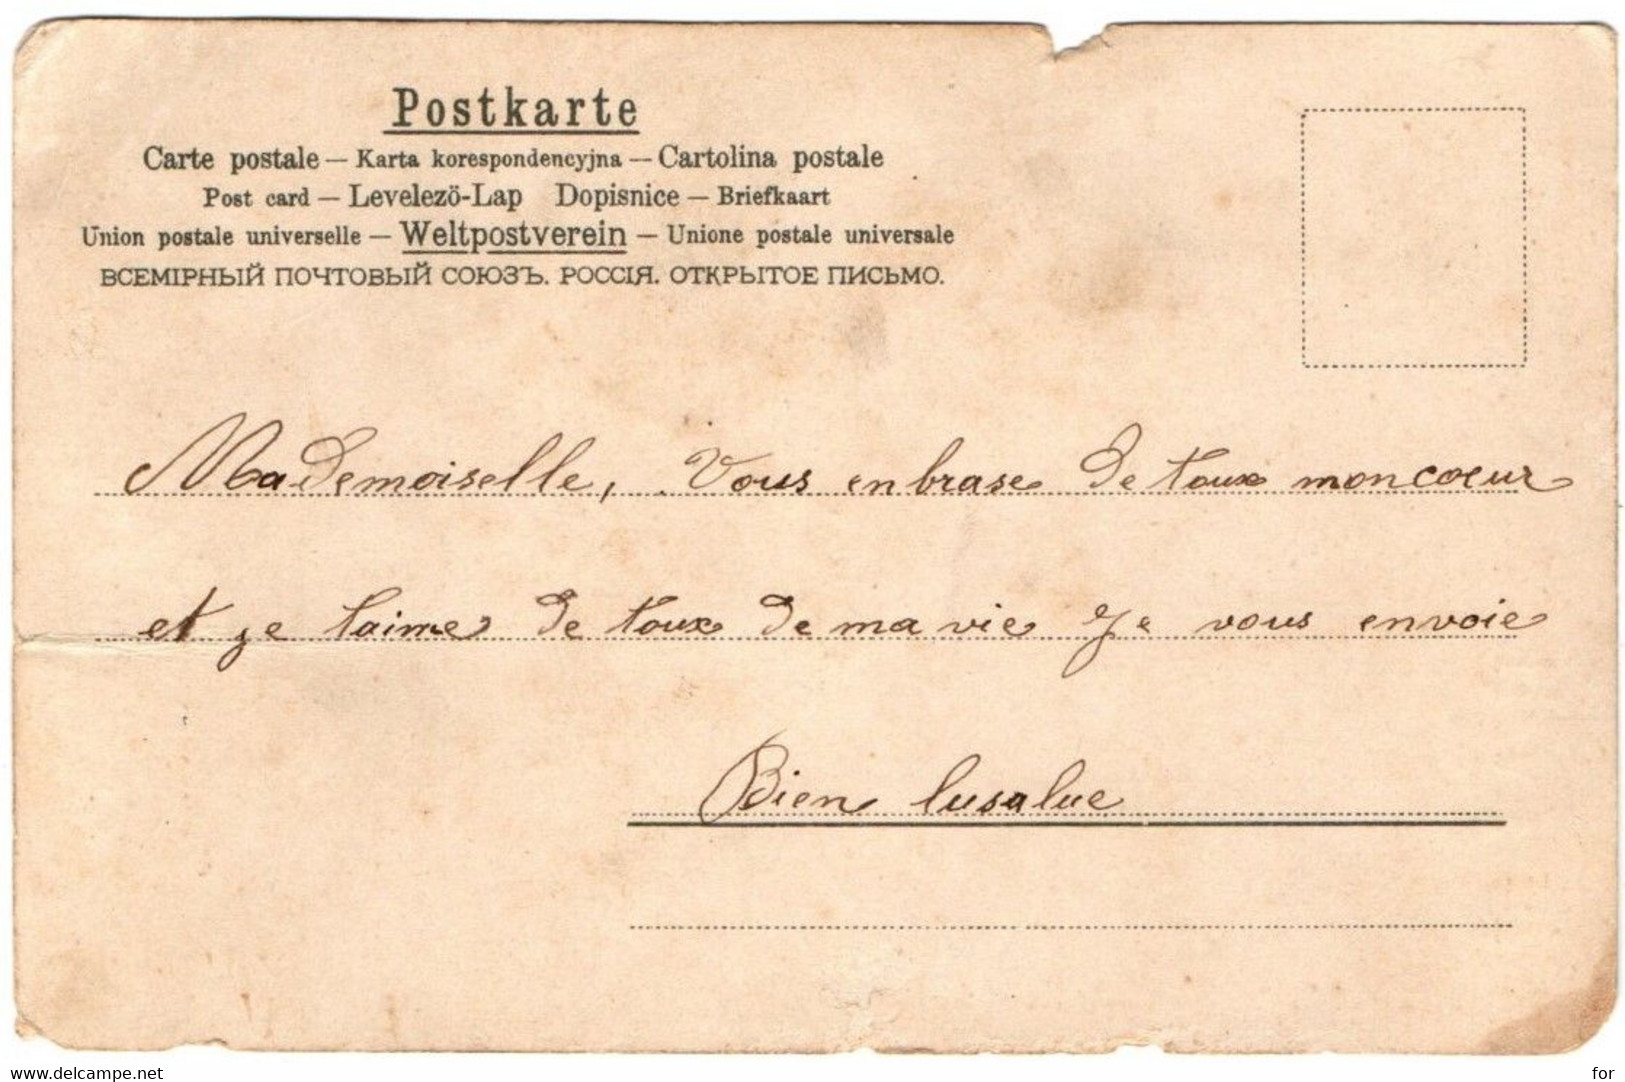 Postkarte
Carte postale — Karta korespondencyjna — Cartolina postale
Post card — Levelezö-Lap Dopisnice — Briefkaart
Union postale universelle — Weltpostverein — Unione postale universale
ВСЕМІРНЫЙ ПОЧТОВЫЙ СОЮЗЪ. РОССІЯ. ОТКРЫТОЕ ПИСЬМО.
Mademoiselle, Vous enbrase de toux mon coeur
et je taime de toux de ma vie Je vous envoie
Bien lusalue
www.delcampe.net
for